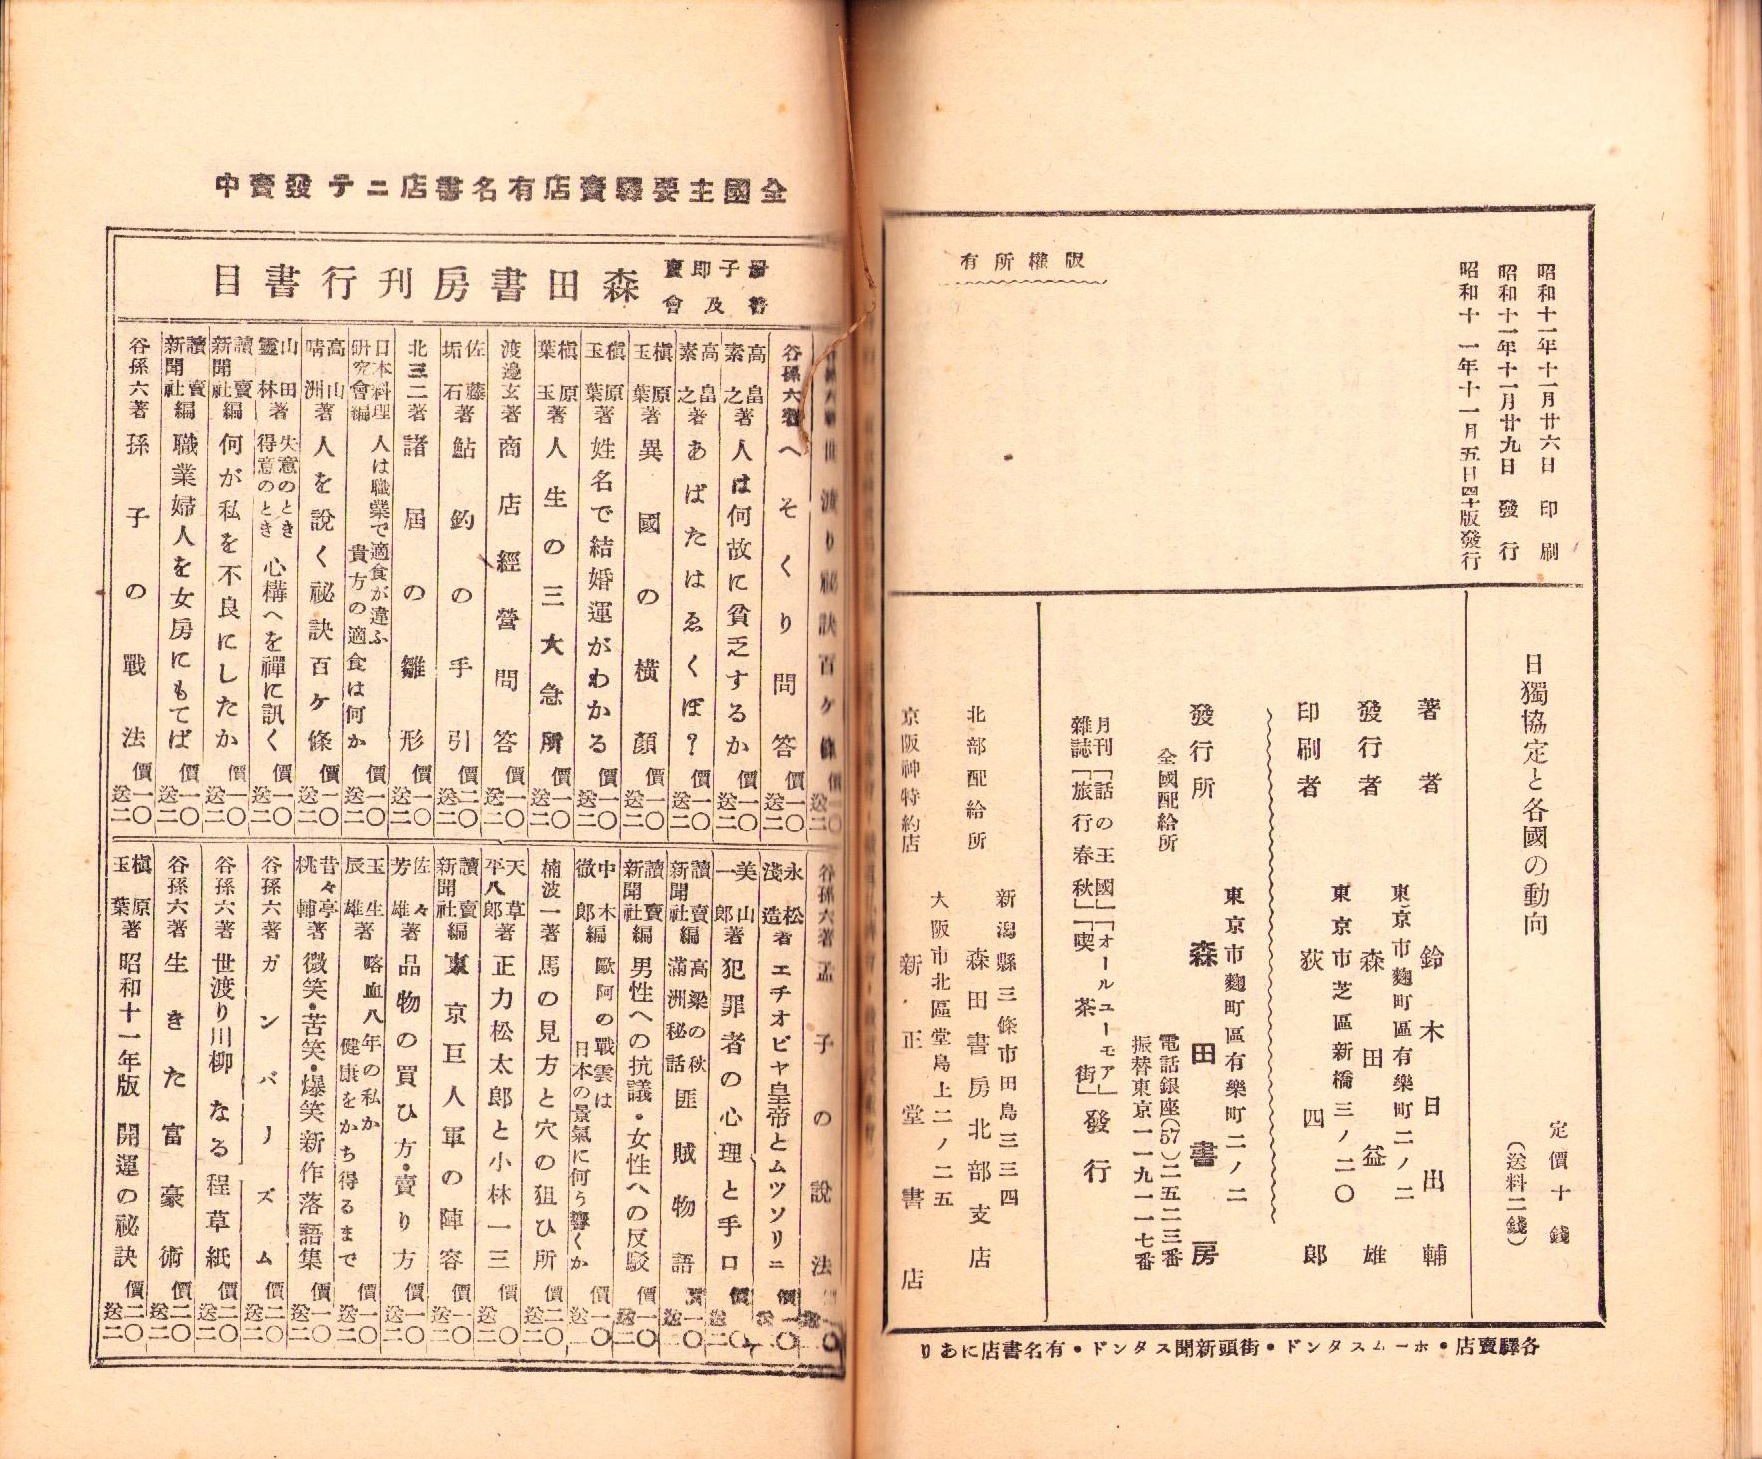 昭和十一年十二月廿六日 印刷
昭和十一年十二月廿九日 發行
昭和十一年十一月五日四十版發行
版權所有
日獨協定と各國の動向
定價十錢
(送料二錢)
著者 鈴木日出輔
東京市麹町區有樂町二ノ二
發行者 森田益雄
東京市芝區新橋三ノ二〇
印刷者 荻四郎
東京市麹町區有樂町二ノ二
發行所 森田書房
全國配給所
電話銀座(57)二五二三番
振替東京一一九一一七番
月刊「話の王國」「オールユーモア」
雜誌「旅行春秋」「喫茶街」發行
新潟縣三條市田島三三四
北部配給所 森田書房北部支店
大阪市北區堂島上二ノ二五
京阪神特約店 新正堂書店
各驛賣店・ホームスタンド・街頭新聞スタンド・有名書店にあり
全國主要驛賣店有名書店ニテ發賣中
森田書房刊行書目
世渡り祕訣百ケ條
谷孫六著 へそくり問答 價一〇 送二
高畠素之著 人は何故に貧乏するか 價一〇 送二
高畠素之著 あばたはゑくぼ? 價一〇 送二
槇原玉葉著 異國の横顔 價一〇 送二
槇原玉葉著 姓名で結婚運がわかる 價一〇 送二
槇原葉玉著 人生の三大急所 價一〇 送二
渡邊玄著 商店經營問答 價一〇 送二
佐藤垢石著 鮎釣の手引 價二〇 送二
北三二著 諸屆の雛形 價一〇 送二
日本料理研究會編 人は職業で適食が違ふ 貴方の適食は何か 價一〇 送二
高山晴洲著 人を説く祕訣百ケ條 價一〇 送二
山田靈林著 失意のとき得意のとき 心構へを禪に訊く 價一〇 送二
讀賣新聞社編 何が私を不良にしたか 價一〇 送二
讀賣新聞社編 職業婦人を女房にもてば 價一〇 送二
谷孫六著 孫子の戰法 價一〇 送二
谷孫六著 孟子の説法
永松淺造著 エチオピヤ皇帝とムツソリニ
美山一郎著 犯罪者の心理と手口
讀賣新聞社編 高梁の秋滿洲秘話 匪賊物語
讀賣新聞社編 男性への抗議・女性への反駁 價一〇
中木徹郎編 歐阿の戰雲は日本の景氣に何う響くか 價一〇
楠波一著 馬の見方と穴の狙ひ所 價二〇 送二
天草平八郎著 正力松太郎と小林一三 價一〇 送二
讀賣新聞社編 東京巨人軍の陣容 價一〇 送二
佐々芳雄著 品物の買ひ方・賣り方 價一〇 送二
玉生辰雄著 喀血八年の私か 健康をかち得るまで 價一〇 送二
昔々亭桃輔著 微笑・苦笑・爆笑新作落語集 價一〇 送二
谷孫六著 ガンバリズム 價二〇 送二
谷孫六著 世渡り川柳なる程草紙 價二〇 送二
谷孫六著 生きた富豪術 價二〇 送二
槇原玉葉著 昭和十一年版 開運の祕訣 價二〇 送二